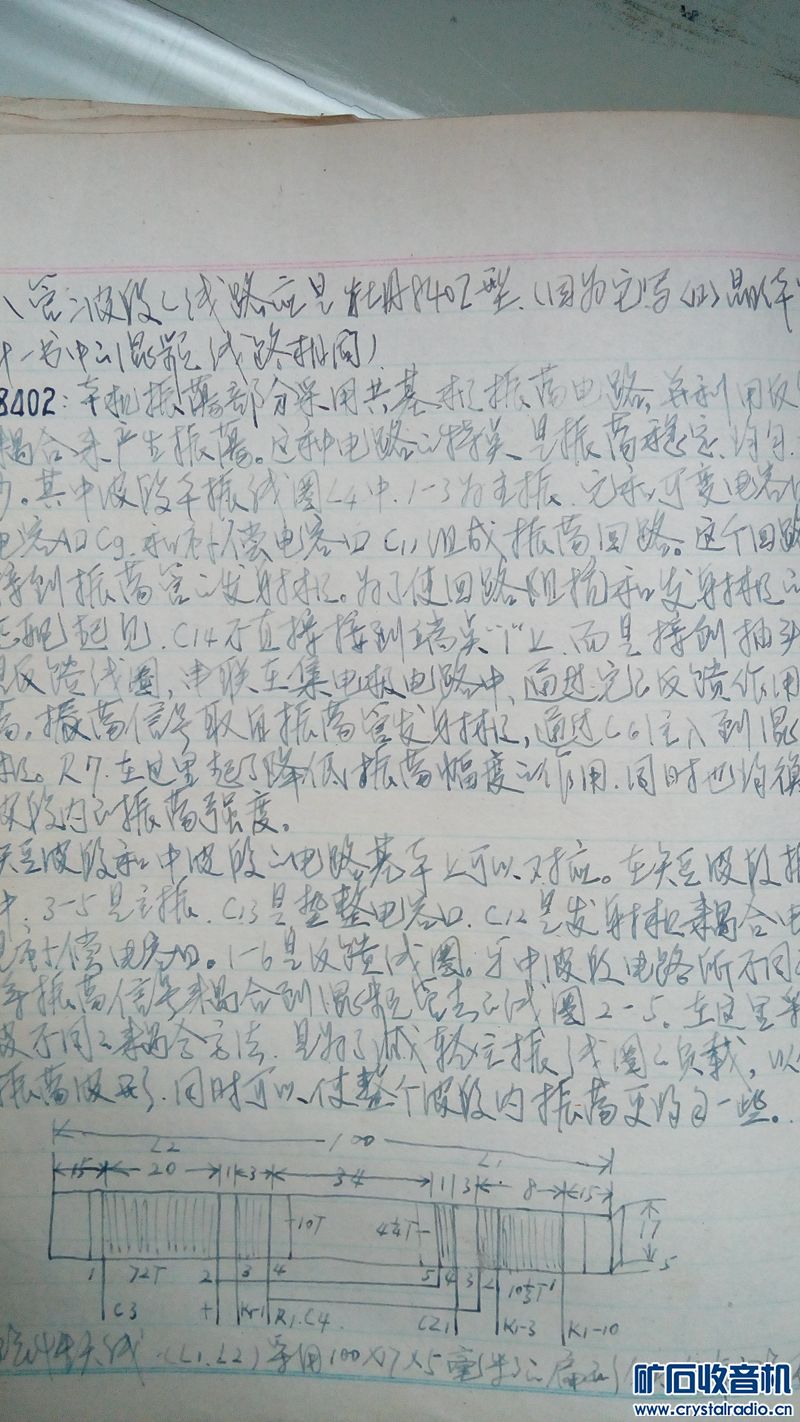 八管二波段(线路应是牡丹8402型.(因为它与
一书中的混频线路相同)
8402:本机振荡部分采用共基极振荡电路,并利用反
耦合来产生振荡。这种电路的特点是振荡稳定、均匀.
。其中波段本振线圈L4中.1-3为主振.它和可变电容
电容AD C9.和补偿电容口C11组成振荡回路。这个回路
接到振荡管的发射极。为了使回路阻抗和发射极的
匹配起见.C14不直接接到端点"1"上.而是接到抽头
反馈线圈,串联在集电极电路中,通过它的反馈作用
荡,振荡信号取自振荡管发射极,通过C6注入到混
极。R7.在这里起了降低振荡幅度的作用.同时也均衡
波段内的振荡强度。
短波段和中波段的电路基本上可以对应。在短波段
中.3-5是主振.C13是垫整电容口.C12是发射极耦合电
补偿电容口。1-6是反馈线圈。与中波段电路所不同
本振荡信号耦合到混频管去的线圈2-5。在这里采
不同的耦合方法.是为了减轻主振线圈的负载,以
振荡波形.同时可以使整个波段内振荡更均匀一些。
L2 100 L1
15 20 1 3 34 1 3 8 15
10T 4¼T 17
1 72T 2 3 4 5 4 3 2 10⅓T 1 5
C3 + K1-1 R1.C4 CZ1 K1-3 K1-10
天线(L1.L2)采用100×17×5毫米的扁
矿石收音机
www.crystalradio.cn